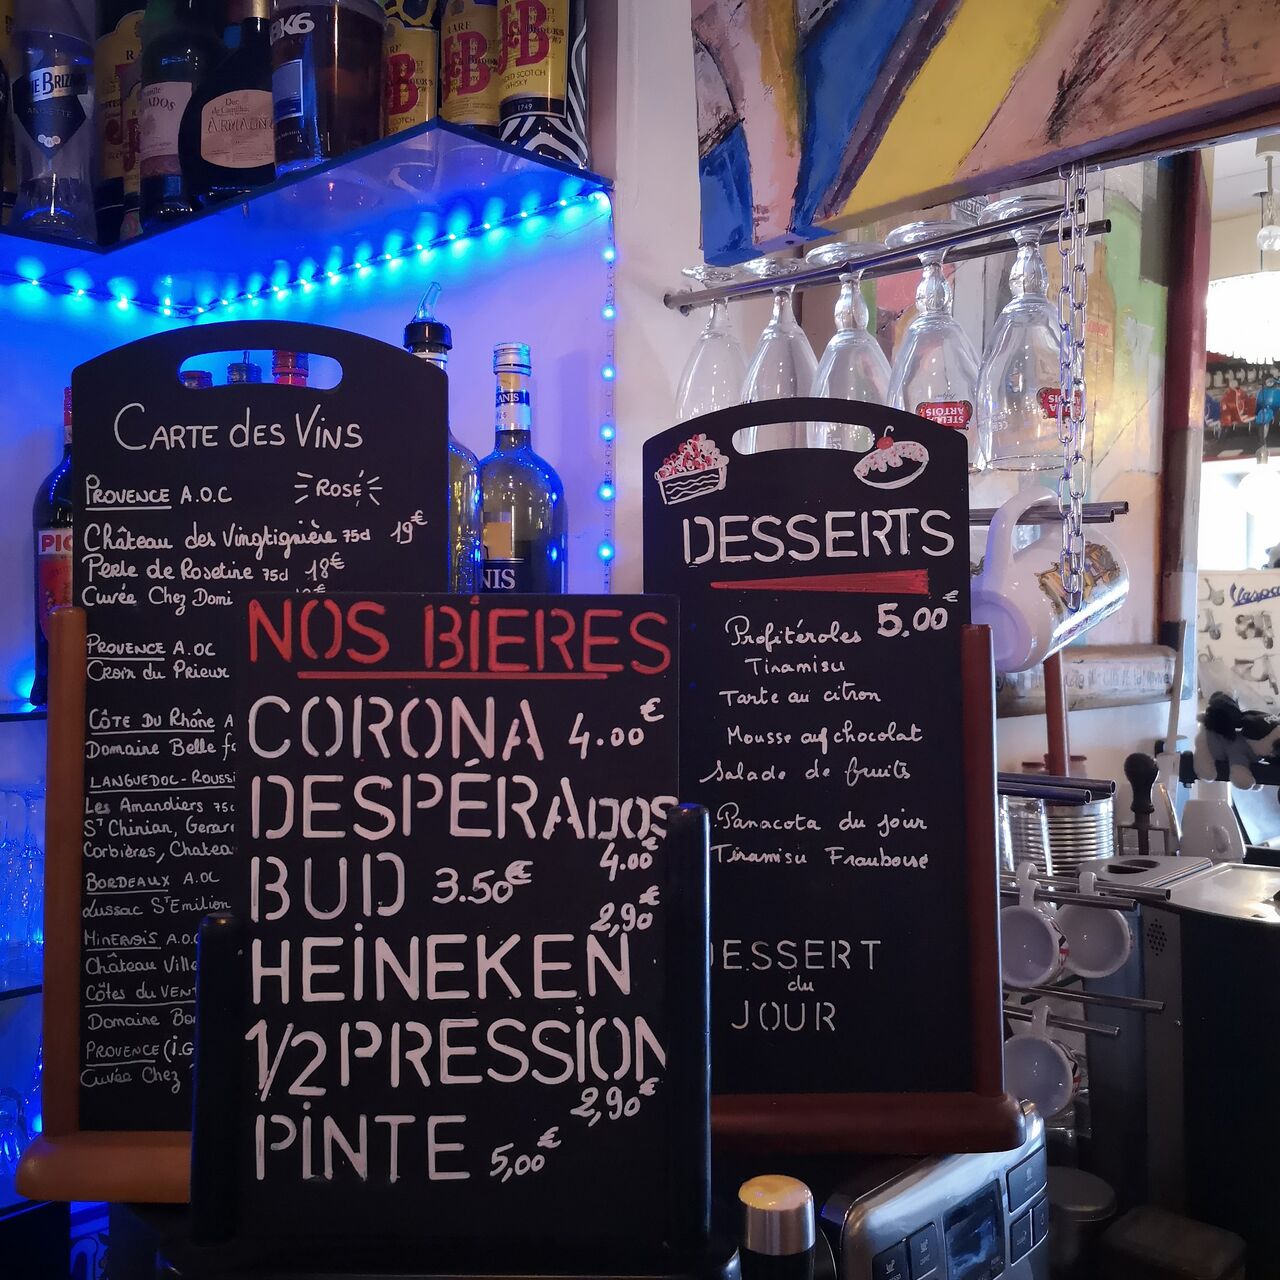 BRIZ
ANISETTE
ADOS
Duc
ARMAGN
BK6
RARE
J&B
SCOTCH
WHISKY
1749
CARTE des VINS
PROVENCE A.O.C ROSÉ
Château des Vingtignière 75cl 19€
Perle de Roseline 75cl 18€
Cuvée Chez Domi
PROVENCE A.OC
Croix du Prieur
CÔTE DU Rhône A
Domaine Belle f
LANGUEDOC-ROUSSI
Les Amandiers 75c
St Chinian, Gerar
Corbières, Chatea
BORDEAUX A.OC
Lussac St Emilion
MINERVOIS A.O.C
Château Ville
CÔTES du VENT
Domaine Bo
PROVENCE (I.G
Cuvée Chez
NOS BIERES
CORONA 4.00€
DESPÉRADOS
4.00€
BUD 3.50€
2,90€
HEINEKEN
1/2 PRESSION
2,90€
PINTE 5,00€
DESSERTS
5.00€
Profitéroles
Tiramisu
Tarte au citron
Mousse au chocolat
Salade de fruits
Panacota du jour
Tiramisu Framboise
DESSERT
du
JOUR
STELLA
ARTOIS
Vespa
ANIS
NIS
PIC